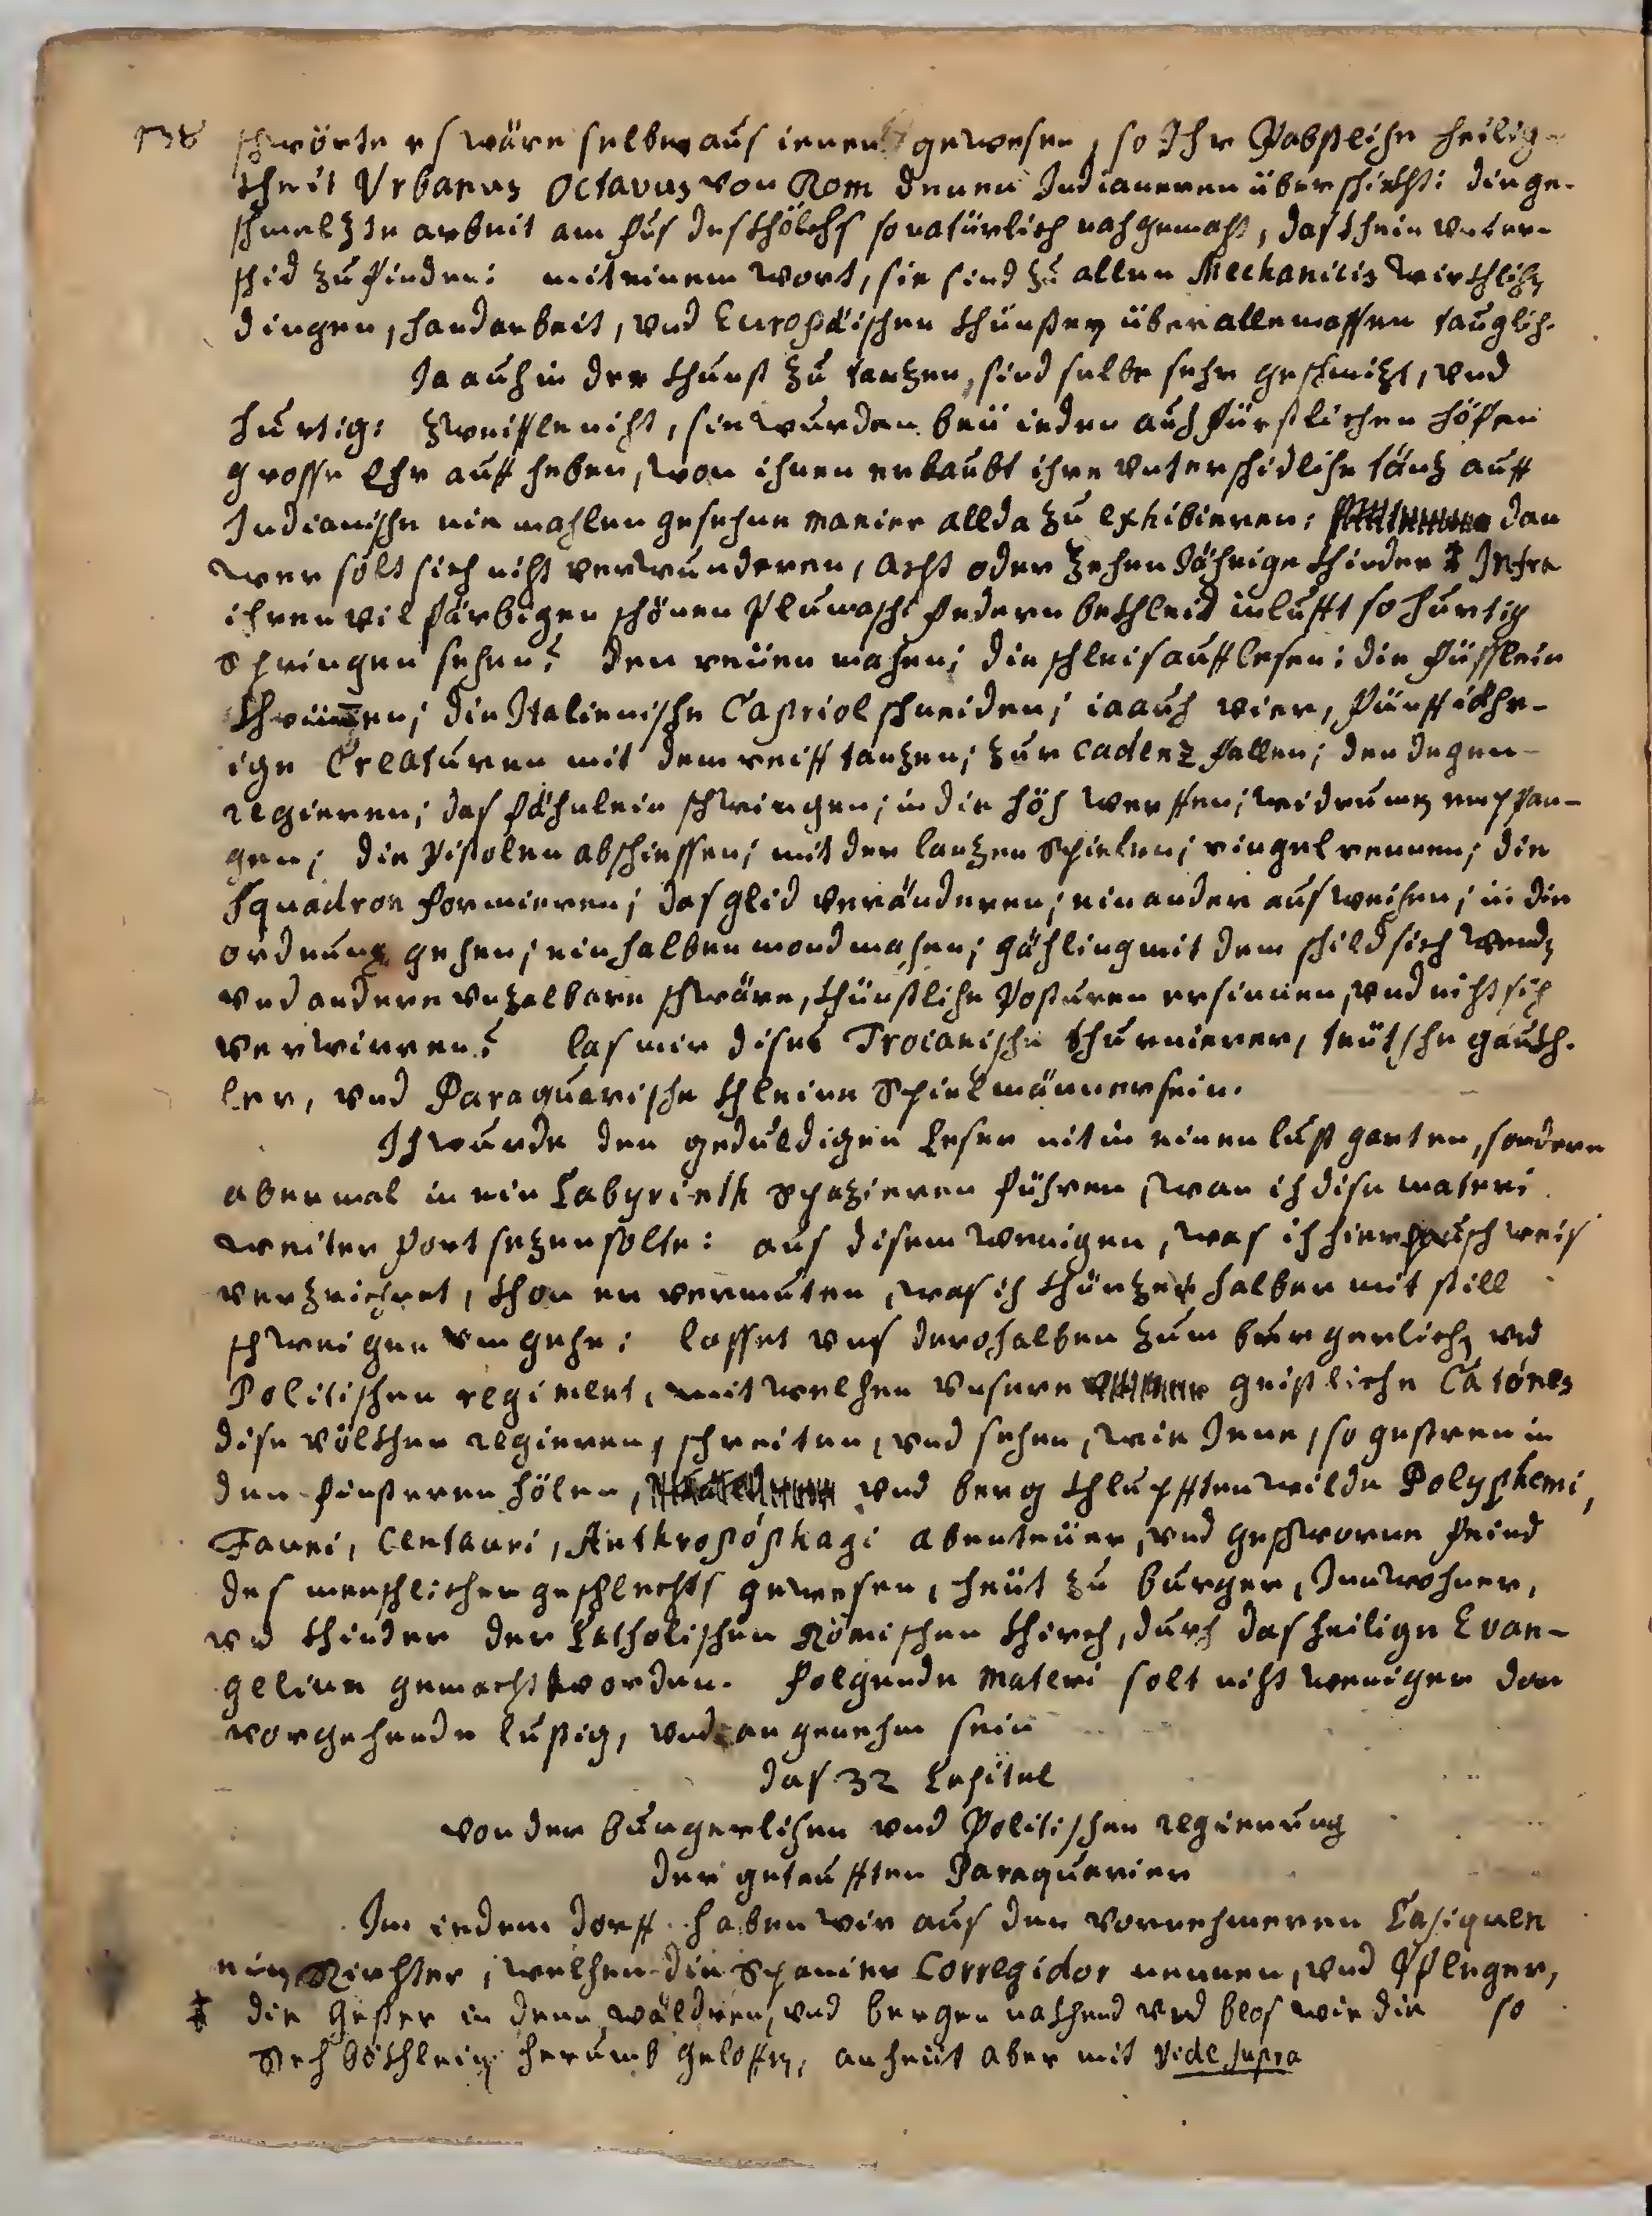 138 schwörte es wäre selber aus ienen gewesen, so Ihr Päbstliche heilig-
kheit Vrbanus Octavus von Rom denen Indianeren überschickht: die ge-
schmelzte arbeit am fus des khölchs so natürlich nachgemacht, das khein vnter-
schid zu finden: mit einem wort, sie sind zu allen Mechanicis wirkhlichen
dingen, handarbeit, vnd Europäischen khünsten über alle massen tauglich.
Ja auch in der khunst zu tantzen, sind selbe sehr geschmizt, vnd
hurtig: zweiffle nicht, sie wurden beü ieden auch fürstlichen höfen
grosse Ehr auff heben, wan ihnen erlaubt ihre vnterschidliche täntz auff
Indianische nie mahlen gesehne manier allda zu exhibieren: dan
wer solt sich nicht verwunderen, acht oder zehen Jährige khinder ‡ Infra
ihren vil färbigen schönen plumaschi federn bekhleid in lufft so hurtig
springen sehen? den reüen machen; die schleif auff lesen: die füsslein
khrümmen; die Italienische Capriol schneiden; ia auch vier, fünff iähr-
ige Creaturen mit dem reiff tantzen; zur cadenz fallen; den degen
regieren; das fähnlein schwingen; in die höch werffen; widrumb empfan-
gen; die pistolen abschiessen; mit der lantzen spielen; ringel rennen; die
Squadron formieren; das glid veränderen; ein ander ausweichen; in die
ordnung gehen; ein halben mond machen; gähling mit dem schild sich wenden
vnd andere vnzelbare schwäre, khünstliche posturen ersinnen, vnd nicht sich
verwirren? las mir dises Troianische thurnierer, teütsche gaukh-
ler, vnd Paraquarische khleine Spielmänner sein.
Ich wurde den geduldigen leser nit in einen lust garten, sondern
abermal in ein Labyrinth spazieren führen, wan ich dise materi
weiter fort setzen solte: aus disem wenigen, was ich hier pausch weis
verzeichnet, khan er vermuten, was ich khürtze halber mit still
schweigen vmgehe: lasset vns derohalben zum burgerlichen vnd
Politischen regiment, mit welchen vnsere geistliche Catónes
dise völkher regieren, schreiten, vnd sehen, wie Jene, so gestren in
den finsteren hölen, vnd berg khlupfften wilde Polyphemi,
Fauni, Centauri, Anthropóphagi abenteüer, vnd geschworne feind
des menschlichen geschlechts gewesen, heüt zu burger, Innwohner,
vnd khinder der Catholischen Römischen khirch, durch das heilige Evan-
gelium gemacht worden. folgende materi solt nicht weniger dan
vorgehende lustig, vnd angenehm sein
das 32 Capitel
von der burgerlichen vnd Politischen regierung
der getaufften Paraquarier
Im iedem dorff haben wir aus den vornehmeren Casiquen
ein Richter, welchen die Spanier Corregidor nennen, vnd Pfleger,
so
‡ die gester in denen wäldren, vnd bergen nakhend vnd blos wie die
Rech bökhlein herumb geloffen, anheüt aber mit vide supra